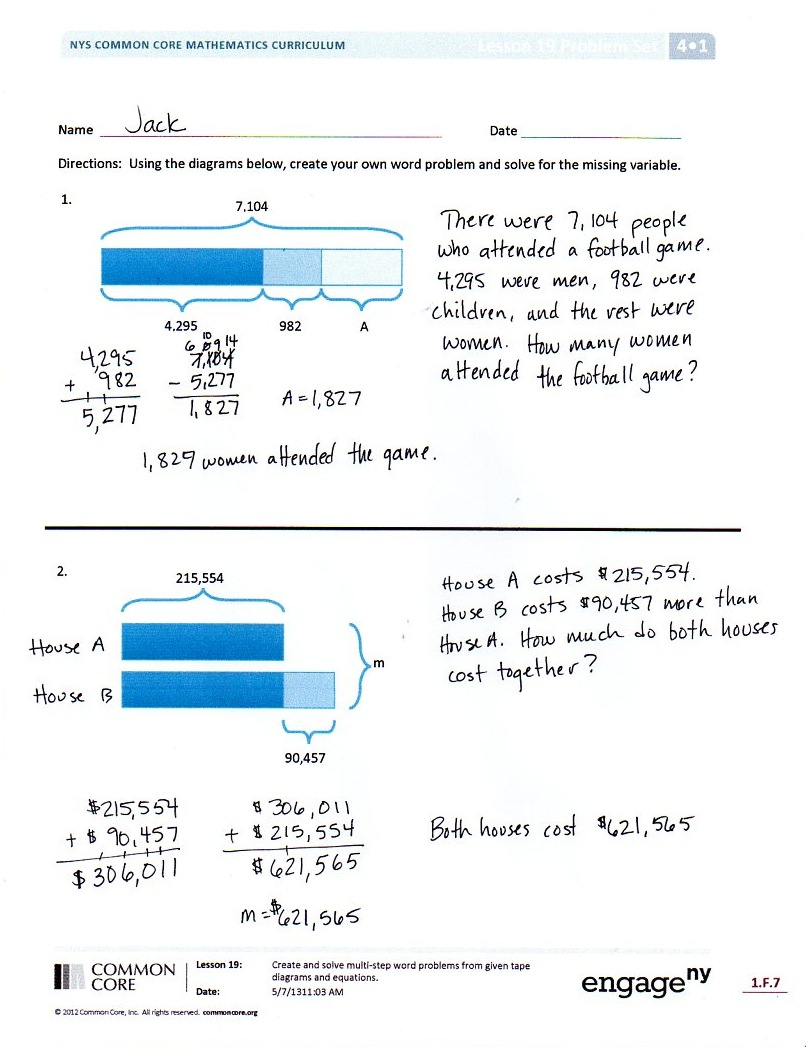 NYS COMMON CORE MATHEMATICS CURRICULUM Lesson 19 Problem Set 4•1
Name Jack Date
Directions: Using the diagrams below, create your own word problem and solve for the missing variable.
1.
7,104
4,295 982 A
There were 7,104 people
who attended a football game.
4,295 were men, 982 were
children, and the rest were
women. How many women
attended the football game?
4,295
+ 982
5,277
10
6 0 9 14
7,104
- 5,277
1,827
A = 1,827
1,827 women attended the game.
2.
215,554
House A
House B
m
90,457
House A costs $215,554.
House B costs $90,457 more than
House A. How much do both houses
cost together?
$215,554
+ $ 90,457
$ 306,011
$ 306,011
+ $ 215,554
$ 621,565
m = $621,565
Both houses cost $621,565
COMMON
CORE
Lesson 19: Create and solve multi-step word problems from given tape
diagrams and equations.
Date: 5/7/1311:03 AM
engageny
1.F.7
© 2012 Common Core, Inc. All rights reserved. commoncore.org